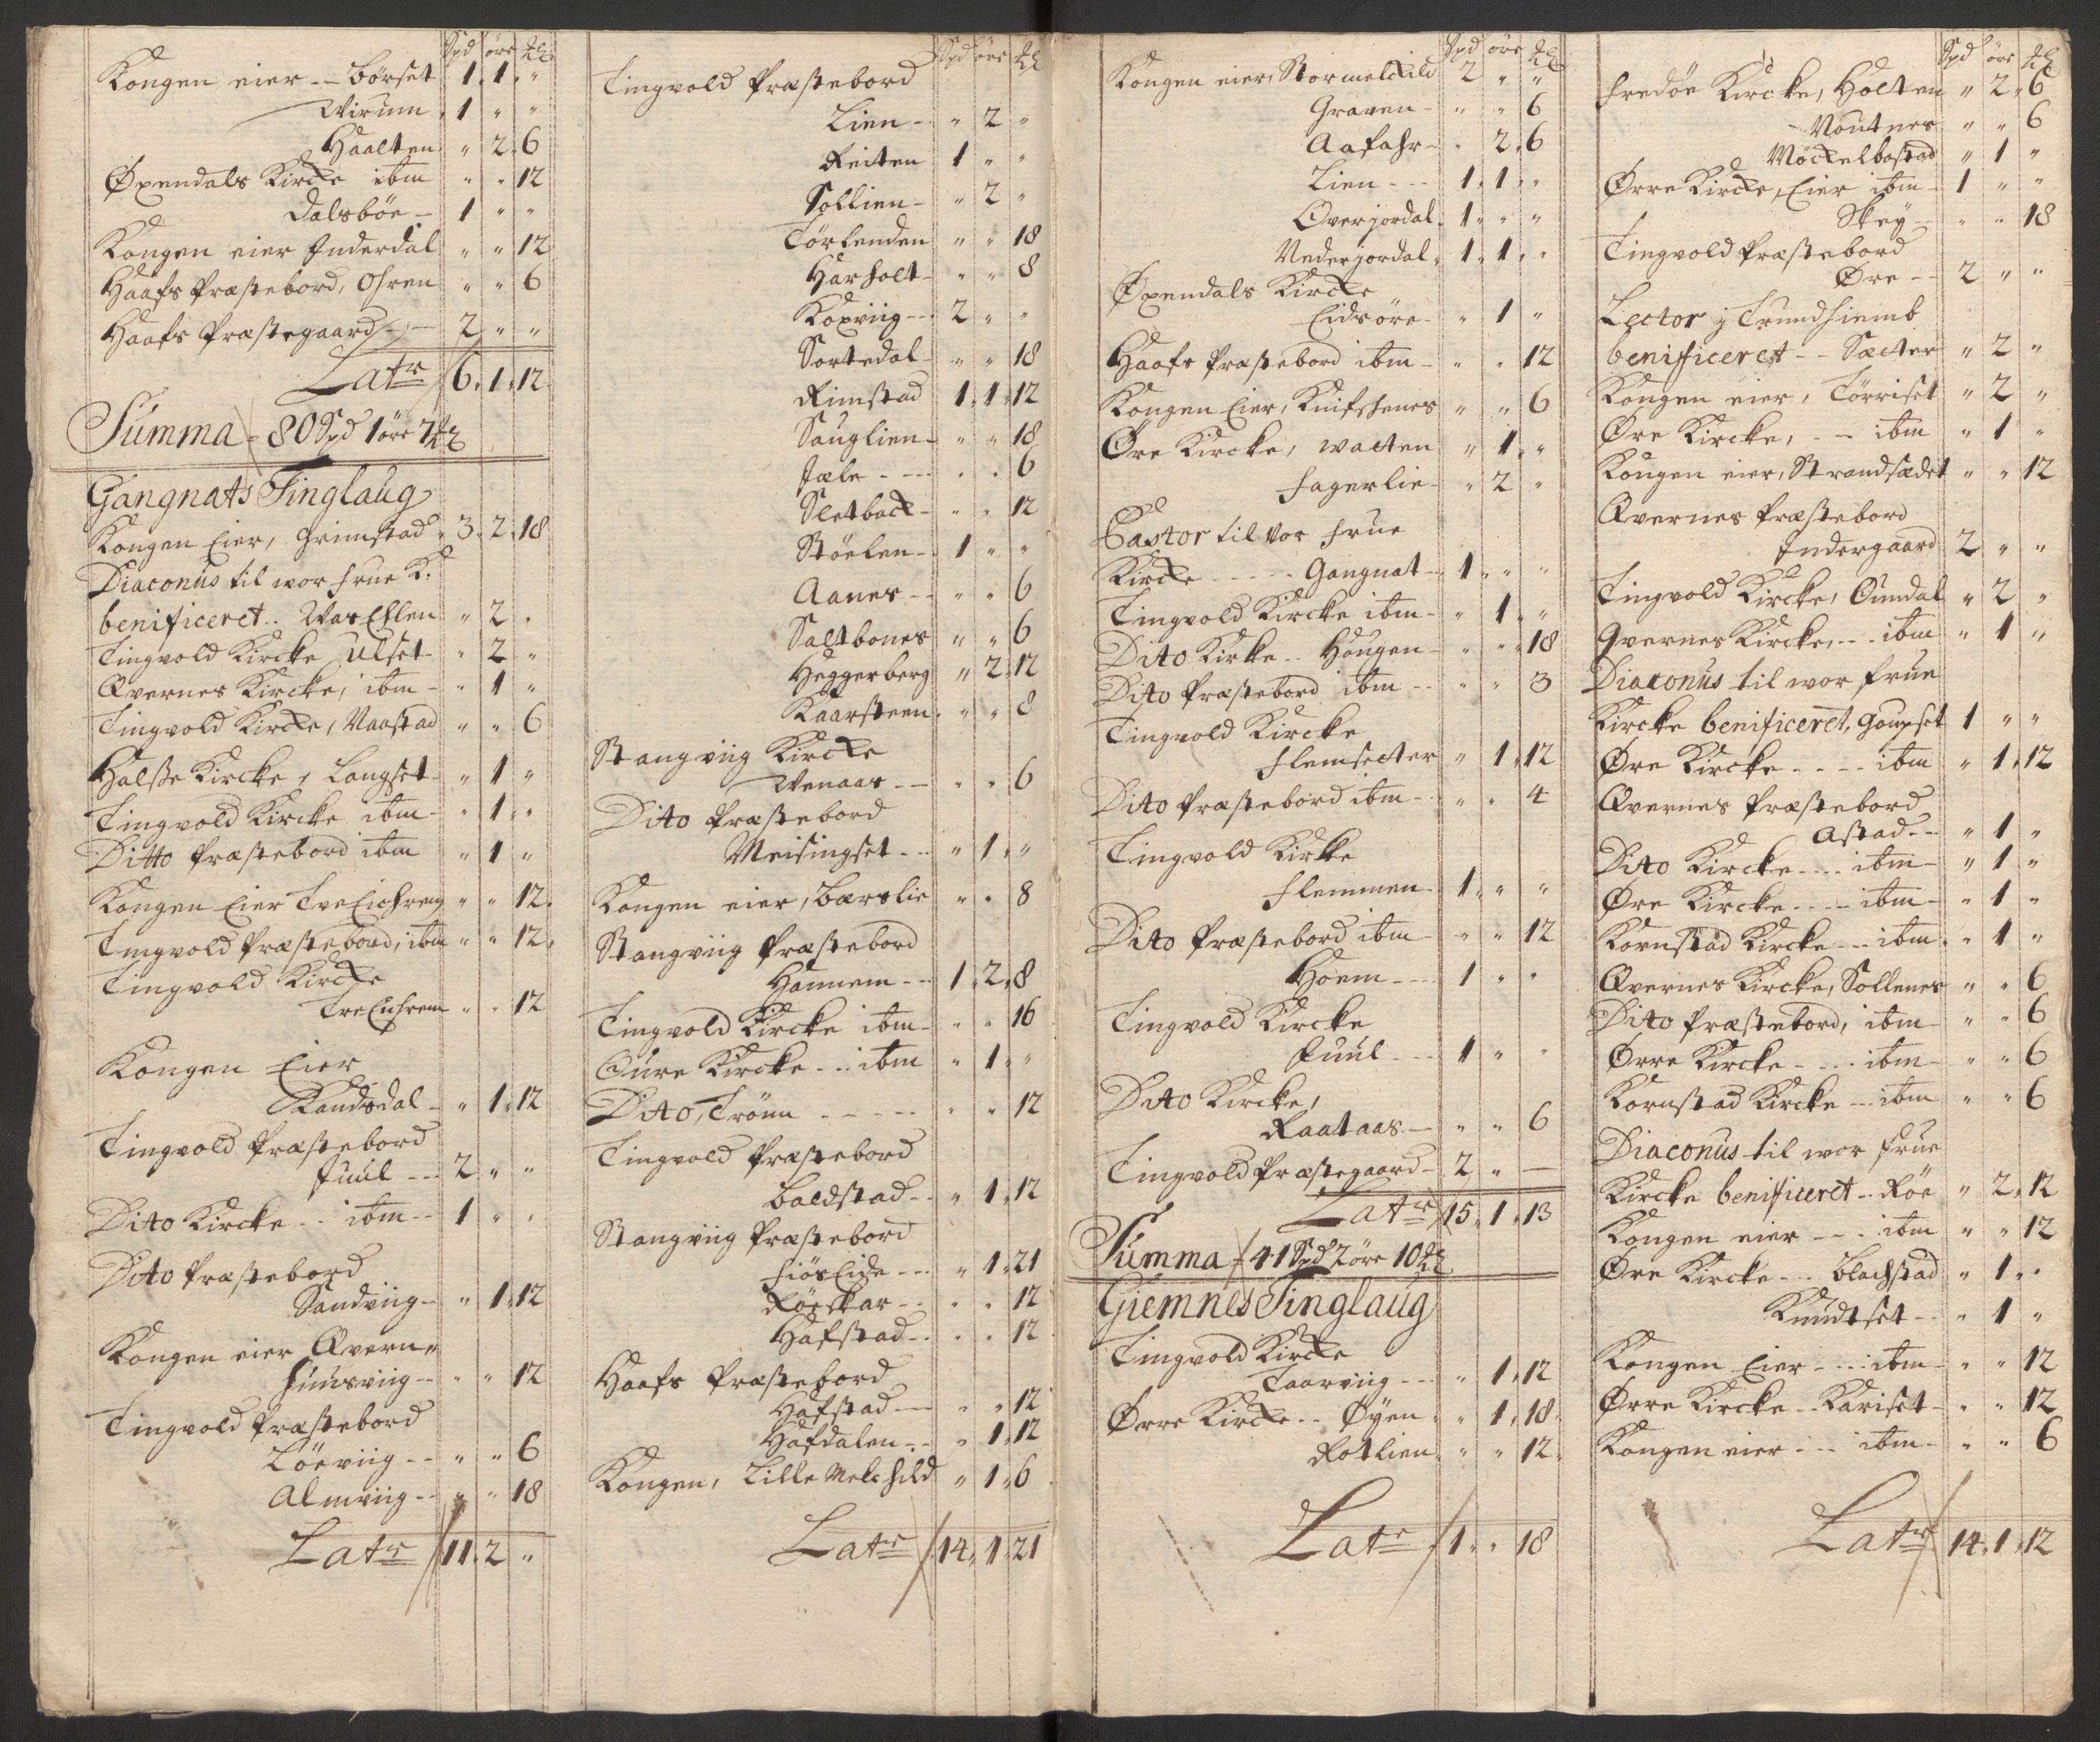 Spd öre
Kongen eier -- Börset 1. 1. "
Wirum 1 " "
Haalten " 2. 6
Øxendals Kircke ibm " " 12
Dalsböe - 1 " "
Kongen eier Inderdal " " 12
Haafs Præstebord, Ohren " " 6
Haafs Præstegaard - - 2 " "
Latr 6. 1. 12
Summa - 80 Spd 1 öre 7
Gangnats Tinglaug
Kongen Eier, Grimstad 3. 2. 18
Diaconus til wor frue K:
benificeret .. " 2 .
Tingvold Kircke Ulset " 2 "
Qvernes Kircke, ibm - " 1 "
Tingvold Kircke, Naastad " " 6
Halsse Kircke, Langset " 1 "
Tingvold Kircke ibm - " 1 . "
Ditto Præstebord ibm " 1 "
Kongen Eier " " 12.
Tingvold Præstebord, ibm " " 12.
Tingvold Kircke
" " 12
Kongen Eier
Kandsdal - " 1. 12
Tingvold Præstebord
Juul --- 2 " "
Dito Kircke -- ibm -- 1 " "
Dito Præstebord
Sandviig - " 1. 12
Kongen eier Qvern"
huusviig -- " " 12
Tingvold Præstebord
Löeviig -- " " 6
Almviig -- " " 18
Latr 11. 2 "
Spd öre
Tingvold Præstebord
Lien - " 2 "
Reiten 1 " "
Sollien - " 2 "
Törlenden " " 18
Harholt - " " 8
Koxviig -- 2 " "
Sortedal - " " 18
Rimstad 1. 1. 12
Sauglien - " " 18
Jæle - --- . . 6
Sletback - " " 12
Stöelen - 1 " "
Aanes -- " " 6
Saltbones " " 6
Heggerberg " 2. 12
Kaarsteen . " " 8
Stangviig Kircke
Wenaas -- " " 6
Dito Præstebord
Meisingset -- " 1. "
Kongen eier, Bærslie " " 8
Stangviig Præstebord
Hannem -- 1. 2. 8
Tingvold Kircke ibm - " " 16
Öure Kircke -- ibm " 1. "
Dito, Trönn ----- " " 12
Tingvold Præstebord
Boldstad -- " 1. 12
Stangviig Præstebord
Fiöseide --- " 1. 21
Röeskar -- " " 12
Hafstad -- . . 12
Haafs Præstebord
Hafstad --- " " 12
Hafdalen -- " 1. 12
Kongen, Lille Melchild " 1. 6
Latr 14. 1. 21
Spd öre
Kongen eier, Stormelchild 2 " "
Graven - " " 6
Aafahr - " 2. 6
Lien --- 1. 1. "
Overjordal. 1. " "
Nederjordal. 1. 1. "
Øxendals Kircke
Eidsöre - " 1 "
Haafs Præstebord ibm - " " 12
Kongen Eier, Knifshenes " " 6
Öre Kircke, wacten " 1. "
Fagerlie - " 2 "
Pastor til Vor Frue
Kircke ----- Gangnat - 1. " "
Tingvold Kircke ibm - " 1. "
Dito Kirke -- Hougen - " " 18
Dito Præstebord ibm -- " " 3
Tingvold Kircke
Flemsetter " 1. 12
Dito Præstebord ibm - " " 4
Tingvold Kirke
Flemmen - 1. " "
Dito Præstebord ibm - " " 12
Hoem --- 1 " "
Tingvold Kircke
Juul --- 1 " "
Dito Kircke,
Raataas. - " " 6
Tingvold Præstegaard - 2 " -
Latr 15. 1. 13
Summa - 41 Spd 2 öre 10
Giemnes Tinglaug
Tingvold Kircke
Taarviig --- " 1. 12
Ørre Kircke -- Øyen . " 1. 18
Rotlien " " 12.
Latr 1. " 18
Spd öre
Fredöe Kircke, Holten " 2. 6
Noutnes " " 6
Möckelbostad " 1 "
Ørre Kircke, Eier ibm - 1 " "
Skey - " " 18
Tingvold Præstebord
Øre -- 2 " "
Lector j Trundhiemb
benificeret -- Sæcter " 2 "
Kongen eier, Törriset " 2 "
Øre Kircke, -- ibm " 1 "
Kongen eier, Strandsædet " " 12
Qvernes Præstebord
Indergaard 2 " "
Tingvold Kircke, Oundal " 2 "
Qvernes Kircke, -- ibm " 1 "
Diaconus til wor frue
Kircke benificeret, Goupset 1 " "
Øre Kircke ---- ibm " 1. 12
Qvernes Præstebord
Astad -- " 1 "
Dito Kircke --- ibm - " 1 "
Øre Kircke ---- ibm - " 1 "
Kornstad Kircke -- ibm . " 1 "
Qvernes Kircke, Sollenes " " 6
Dito Præstebord, ibm - " " 6
Ørre Kircke ---- ibm - " " 6
Kornstad Kircke -- ibm " " 6
Diaconus til wor frue
Kircke benificeret -- Röe " 2. 12
Kongen eier ---- ibm " " 12
Øre Kircke --- Blachstad " 1. .
Knudtset -- " 1 "
Kongen Eier ---- ibm - " " 12
Ørre Kircke -- Kariset - " " 12
Kongen eier --- ibm - " " 6
Latr 14. 1. 12